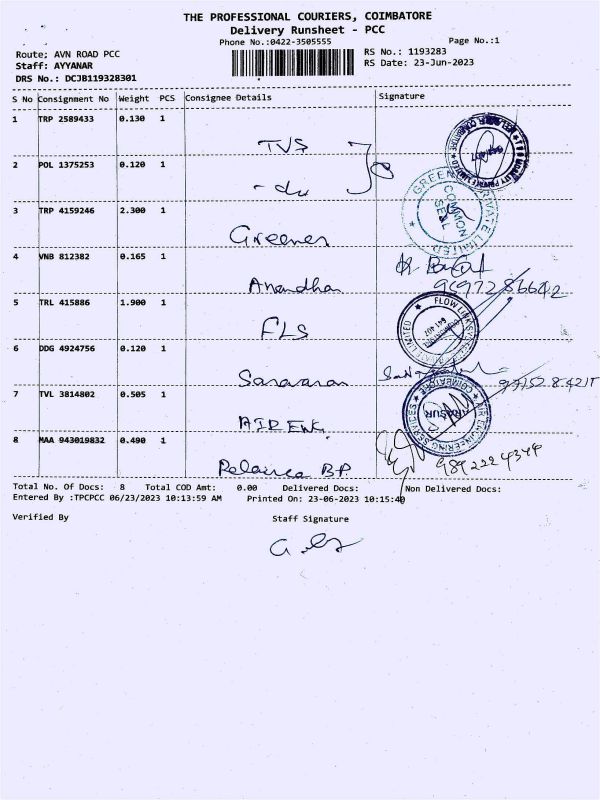 THE PROFESSIONAL COURIERS, COIMBATORE
Delivery Runsheet - PCC
Phone No.:0422-3505555
Page No.:1
Route; AVN ROAD PCC
RS No.: 1193283
Staff: AYYANAR
RS Date: 23-Jun-2023
DRS No.: DCJB119328301
S No Consignment No Weight PCS Consignee Details Signature
1 TRP 2589433 0.130 1
TVS
2 POL 1375253 0.120 1
- do
3 TRP 4159246 2.300 1
Greenen
GREEN PRIVATE LIMITED
COMMON SEAL
4 VNB 812382 0.165 1
Anandhan
5 TRL 415886 1.900 1
FLS
FLOW LINK PRIVATE LIMITED
641 407
6 DDG 4924756 0.120 1
Saravanan
7 TVL 3814802 0.505 1
AIR ENG.
AIR ENGINEERING SERVICES COIMBATORE
ARASUR
8 MAA 943019832 0.490 1
Reliance BP
9892224344
Total No. Of Docs: 8 Total COD Amt: 0.00 Delivered Docs: Non Delivered Docs:
Entered By :TPCPCC 06/23/2023 10:13:59 AM Printed On: 23-06-2023 10:15:40
Verified By Staff Signature